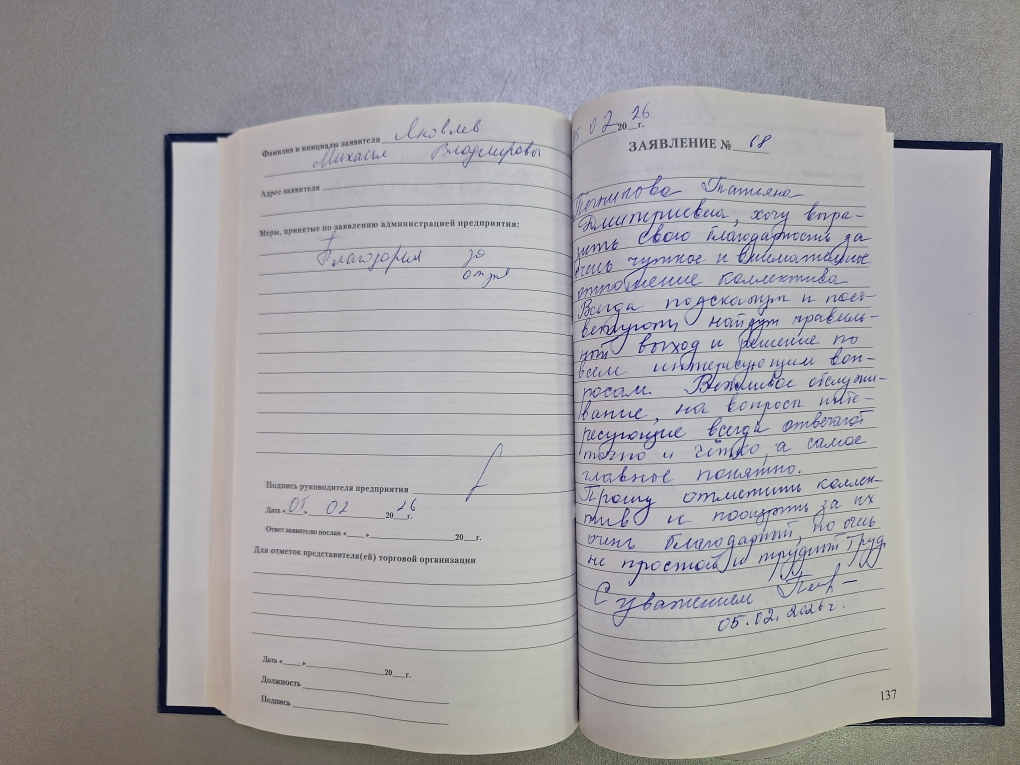 Фамилия и инициалы заявителя Яковлев
Михаил Владимировы
Адрес заявителя
Меры, принятые по заявлению администрацией предприятия:
Благодарим за
Подпись руководителя предприятия
Дата « 05 » 02 20 26 г.
Ответ заявителю послан «___» 20___г.
Для отметок представителя(ей) торговой организации
Дата «___» 20___г.
Должность
Подпись
5 02 20 26 г.
ЗАЯВЛЕНИЕ № 68
Татьяна
Дмитриевна, хочу выра-
зить свою благодарность за
очень чуткое и внимательное
отношение коллектива
Всегда подскажут и посо-
ветуют, найдут правиль-
ный выход и решение по
всем интересующим воп-
росам. Вежливое обслужи-
вание, на вопросы инте-
ресующие всегда отвечают
точно и чётко, а самое
главное понятно.
Прошу отметить коллек-
тив и поощрить за их
очень благодарный, но очень
не простой и трудный труд.
С уважением
05.02.2026 г.
137